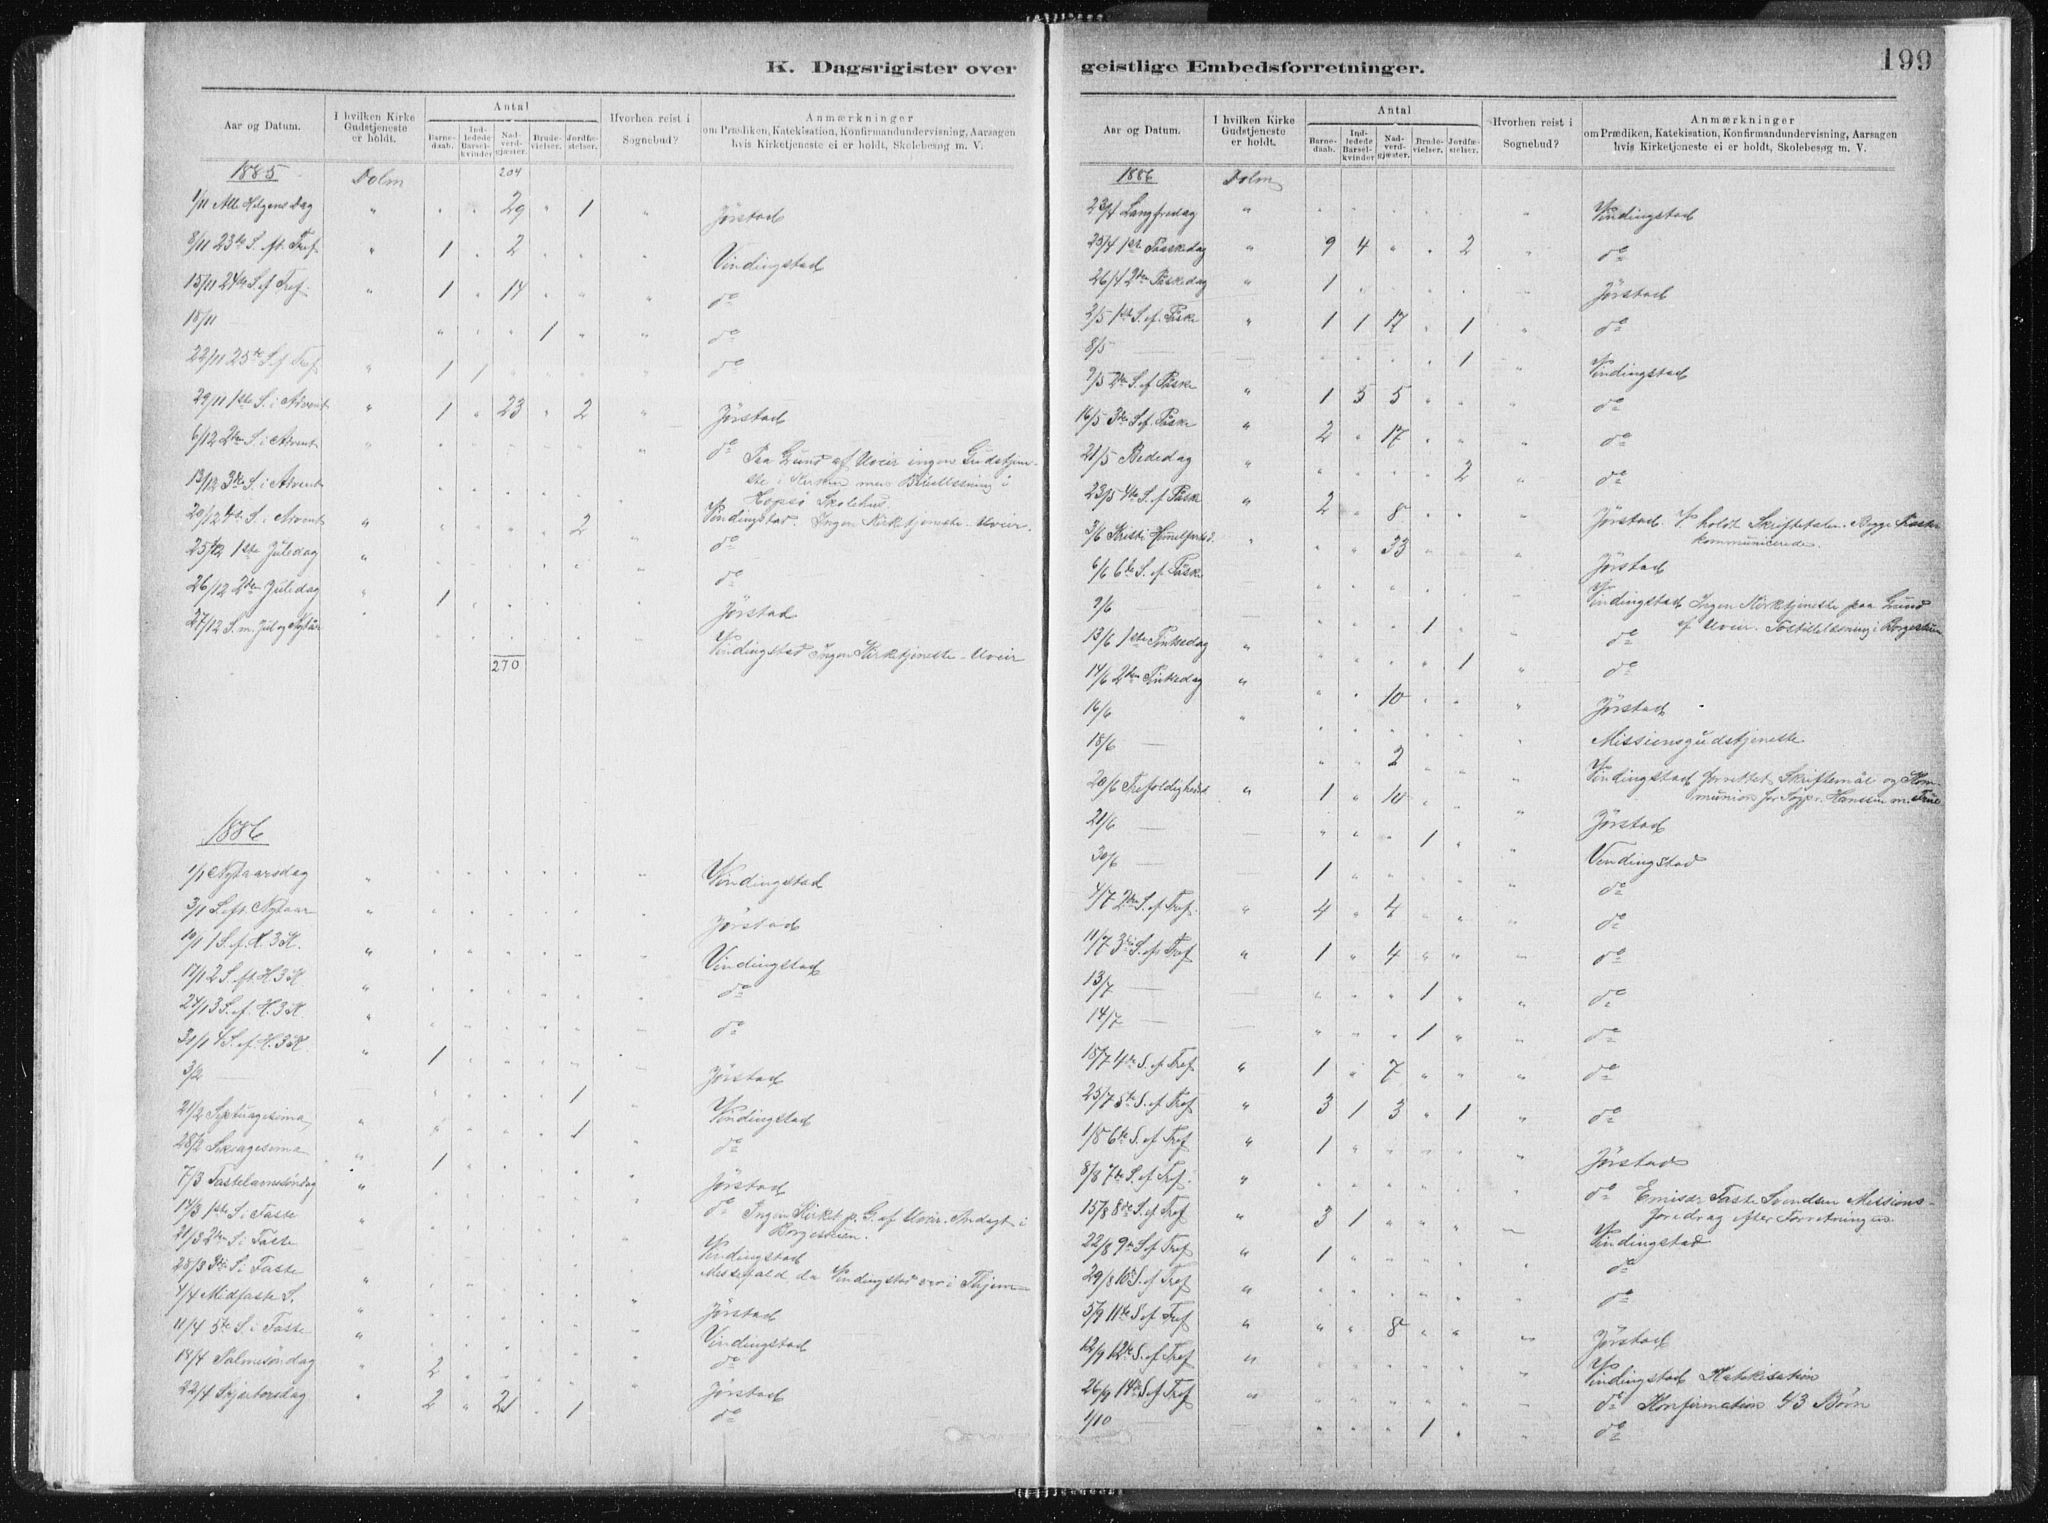 K. Dagsrigister over
Aar og Datum. I hvilken Kirke Gudstjeneste er holdt. Antal Barnedaab. Indledede Barselkvinder Nadverdgjæster. Brudevielser. Jordfæstelser. Hvorhen reist i Sognebud? Anmærkninger om Prædiken, Katekisation, Konfirmandundervisning, Aarsagen hvis Kirketjeneste ei er holdt, Skolebesøg m. V.
1885 Dolm 204
1/11 Alle Helgens Dag " " " 29 " 1 " Jørstad
8/11 23de S. ft. Tref. " 1 " 2 " " " Vindingstad
15/11 24de S. ef Tref. " 1 " 14 " " " do
18/11 — " " " 1 " " do
22/11 25de S. ef Tref. " 1 1 " " " " do
29/11 1ste S. i Advent " 1 " 23 " 2 " Jørstad
6/12 2den S. i Advent " " " " " " " do Paa Grund af Uveir ingen Gudstjeneste i Kirken men Bibellæsning i Hopsø Skolehus
13/12 3die S. i Advent " " " " " " Vindingstad. Ingen Kirketjeneste - Uveir.
20/12 4de S. i Advent " " " " " 2 " do
25/12 1ste Juledag " " " " " " " do
26/12 2den Juledag " 1 " " " " " Jørstad
27/12 S. m. Jul og Nytår " " " " " " Vindingstad Ingen Kirketjeneste - Uveir
270
1886
1/1 Nytaarsdag " " " " " " " Vindingstad
3/1 S. eft. Nytaar " " " " " " " Jørstad
10/1 1 S. ef. H. 3 K. " " " " " " " Vindingstad
17/1 2 S. ft. H. 3 K " " " " " " " do
24/1 3 S. ef. H. 3 K. " " " " " " " do
30/1 4 S. ef. H. 3 K. " 1 " " " " " Jørstad
3/2 — " " " " 1 " Vindingstad
21/2 Septuagesima " " " " " 1 " do
28/2 Sexagesima " 1 " " " " " Jørstad
7/3 Fastelavnssöndag " " " " " " " do Ingen Kirket. p. G. af Uveir. Andagt i Borgestuen.
14/3 1ste S. i Faste " " " " " " "
21/3 2den S. i Faste " " " " " " Vindingstad
28/3 3die S. i Faste " " " " " " Messefald, da Vindingstad var i Thjem
4/4 Midfaste S. " " " " " " " Jørstad
11/4 5te S. i Faste " " " " " " " Vindingstad
18/4 Palmesöndag " 2 " " " " " do
22/4 Skjærtorsdag " 2 " 21 " 1 " Jørstad
do
geistlige Embedsforretninger.
199
Aar og Datum. I hvilken Kirke Gudstjeneste er holdt. Antal Barnedaab. Indledede Barselkvinder Nadverdgjæster. Brudevielser. Jordfæstelser. Hvorhen reist i Sognebud? Anmærkninger om Prædiken, Katekisation, Konfirmandundervisning, Aarsagen hvis Kirketjeneste ei er holdt, Skolebesøg m. V.
1886 Dolm
23/4 Langfredag " " " " " " " Vindingstad
25/4 1ste Paaskedag " 9 4 " " 2 " do
26/4 2den Påskedag " 1 " " " " " Jørstad
2/5 1ste S. ef. Påske " 1 1 17 " 1 " do
8/5 — " " " " 1 " Vindingstad
9/5 2den S. ef Påske " 1 5 5 " " " do
16/5 3die S. ef. Påske " 2 " 17 " " " do
21/5 Bededag " " " " " 2 " do
23/5 4de S. ef Påske " 2 " 8 " " " Jørstad. V. holdt Skriftetalen. Begge Præster kommunicerede.
3/6 Kristi Himelfartsd. " " " 33 " " " Jørstad
6/6 6te S. ef. Påske " " " " " " Vindingstad Ingen Kirketjeneste paa Grund af Uveir. Postillelæsning i Borgestuen
9/6 — " " " 1 " " do
13/6 1ste Pinksedag " " " " " 1 " do
14/6 2den Pinksedag " " " 10 " " " Jørstad
16/6 " " " " " " " Missionsgudstjeneste
18/6 — " " 2 " " " Vindingstad forrettet Skriftemål og Kommunion for Sogpr. Hansen m. Frue
20/6 Trefoldigheds " 1 " 10 " " " Jørstad
21/6 — " " " 1 " " Vindingstad
30/6 — 1 " " " " " do
4/7 2den S. ef Tref. " 4 " 4 " " " do
11/7 3die S. ef Tref " 1 " 4 " " " do
13/7 — " " " 1 " " do
14/7 — " " " 1 " " do
18/7 4de S. ef Tref " 1 " 7 " " " do
25/7 5te S. ef Tref " 3 1 3 " 1 " do
1/8 6te S. ef Tref " 1 " " " " " Jørstad
8/8 7de S. ef Tref. " " " " " " " do Emisær Faste Svendsen Missionsforedrag efter Forretningen
15/8 8de S. ef Tref " 3 1 " " " " Vindingstad
22/8 9de S. ef Tref " 1 " " " " " do
29/8 10de S. ef Tref " " " " " " " do
5/9 11te S. ef Tref " " " 8 " " " Jørstad
12/9 12te S. ef Tref " " " " " " " Vindingstad Katekisation
26/9 14de S. ef Tref " " " " " " " do Konfirmation 43 Børn
1/10 " " " 1 " " do